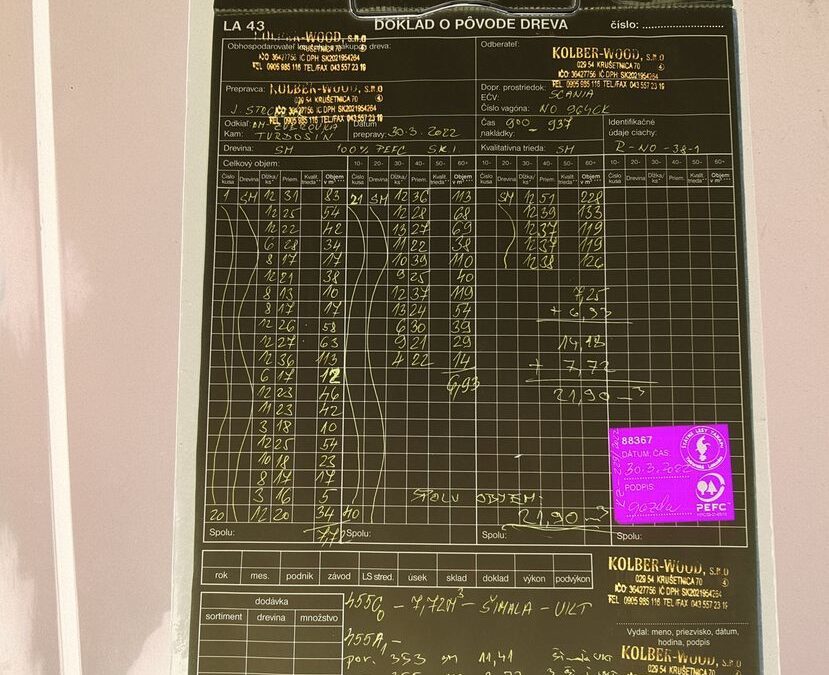 LA 43 DOKLAD O PÔVODE DREVA číslo:
KOLBER-WOOD, s.r.o
029 54 KRUŠETNICA 70
IČO: 36427756 IČ DPH SK2021954264
TEL. 0905 985 116 TEL/FAX 043 557 23 19
Odberateľ:
KOLBER-WOOD, s.r.o
029 54 KRUŠETNICA 70
IČO: 36427756 IČ DPH SK2021954264
TEL. 0905 985 116 TEL/FAX 043 557 23 19
Prepravca: KOLBER-WOOD, s.r.o
029 54 KRUŠETNICA 70
IČO: 36427756 IČ DPH SK2021954264
TEL. 0905 985 116 TEL/FAX 043 557 23 19
Dopr. prostriedok: SCANIA
EČV:
Číslo vagóna: NO 964CK
Odkiaľ: ZVEROVKA
Kam: TVRDOŠÍN
Dátum prepravy: 30.3.2022
Čas nakládky: 900 - 937
Identifikačné údaje ciachy: R-NO-38-1
Drevina: SM 100% PEFC SK.1. Kvalitatívna trieda: SM
Celkový objem: 10- 20- 30- 40- 50- 60+ 10- 20- 30- 40- 50- 60+ 10- 20- 30- 40- 50- 60+
Číslo kusa Drevina Dĺžka/ks Priem. Kvalit. trieda Objem v m³ Číslo kusa Drevina Dĺžka/ks Priem. Kvalit. trieda Objem v m³ Číslo kusa Drevina Dĺžka/ks Priem. Kvalit. trieda Objem v m³ Číslo kusa Drevina Dĺžka/ks Priem. Kvalit. trieda Objem v m³
1 SM 12 31 83 21 SM 12 36 113 SM 12 51 228
12 25 54 12 28 68 12 39 133
12 22 42 13 27 69 12 37 119
6 28 34 11 22 38 12 37 119
8 17 17 10 39 110 12 38 126
12 21 38 9 25 40
8 13 10 12 37 119 7,25
8 17 17 13 24 54 + 6,93
12 26 58 6 30 39
12 27 63 9 21 29 14,18
12 36 113 4 22 14 + 7,72
6 17 12 6,93 21,90 m³
12 23 46
11 23 42
3 18 10
12 25 54
10 18 23
8 17 17
3 16 5 SPOLU OBJEM:
20 12 20 34 40 21,90 m³
Spolu: 7,72 Spolu: Spolu: Spolu:
88367
DÁTUM, ČAS:
30.3.2022
PODPIS:
PEFC
rok mes. podnik závod LS stred. úsek sklad doklad výkon podvýkon
KOLBER-WOOD, s.r.o
029 54 KRUŠETNICA 70
IČO: 36427756 IČ DPH SK2021954264
TEL. 0905 985 116 TEL/FAX 043 557 23 19
dodávka
sortiment drevina množstvo
455C0 - 7,72M³ - ŠIMALA - UKT
455A1 -
por. 353 sm 11,41
Vydal: meno, priezvisko, dátum, hodina, podpis
KOLBER-WOOD, s.r.o
029 54 KRUŠETNICA 70